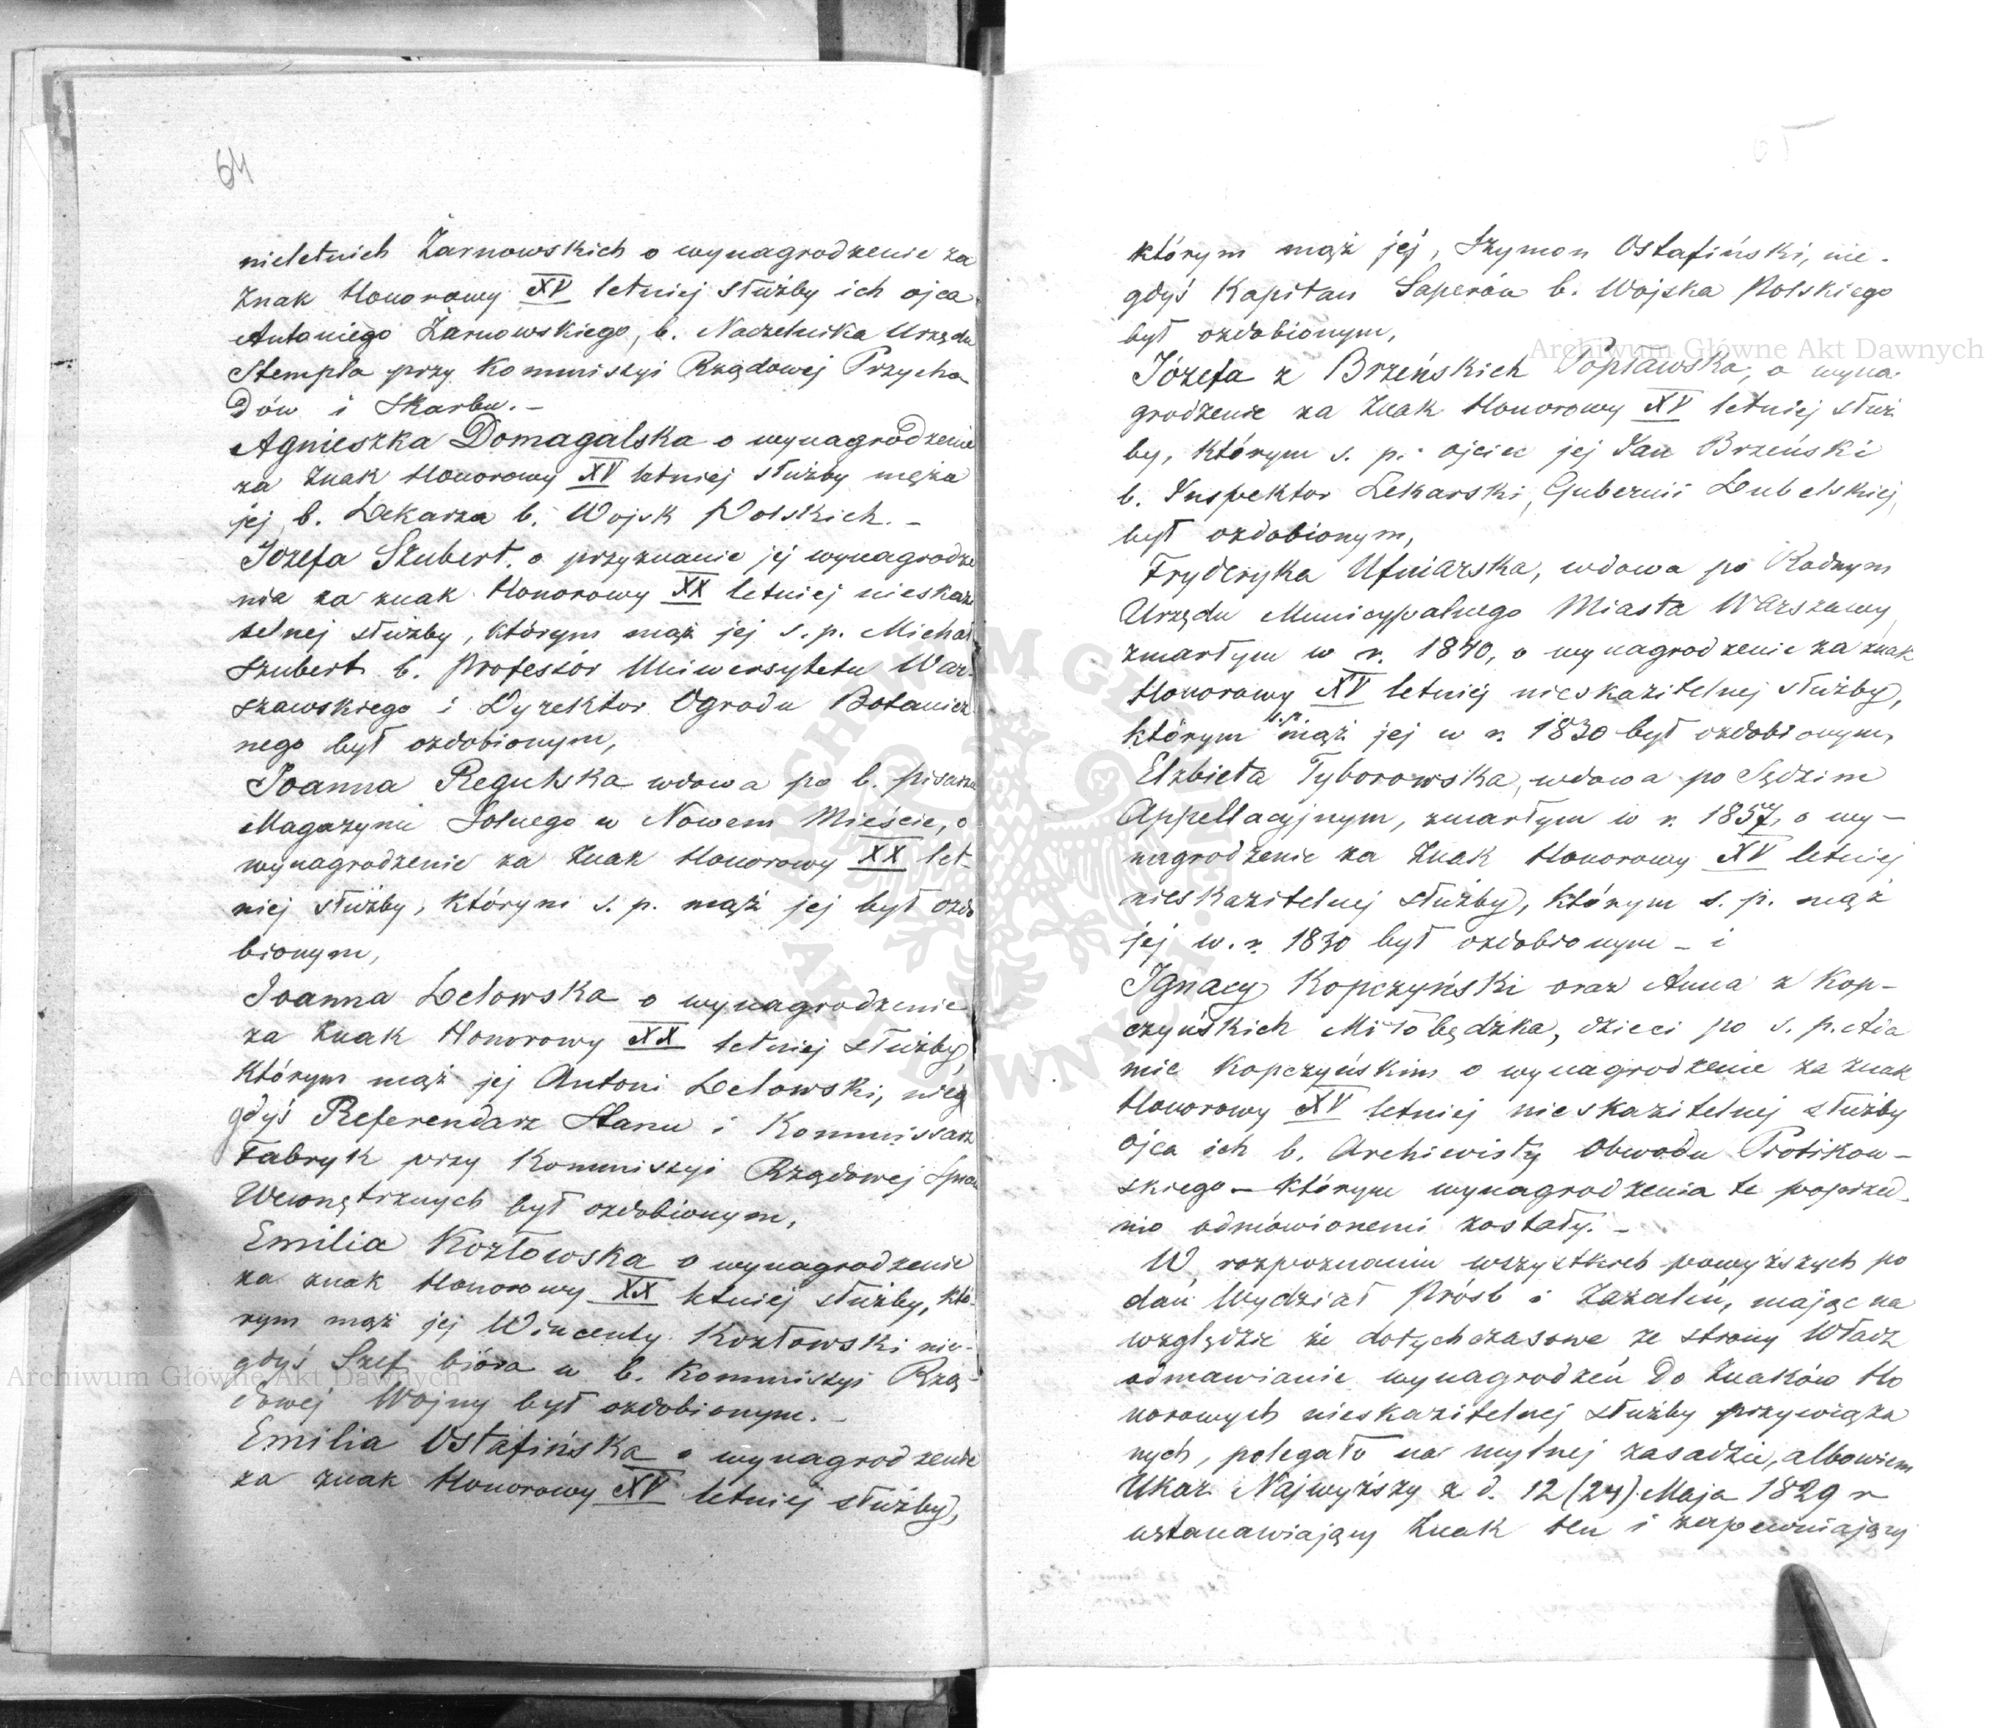 64
nieletnich Żarnowskich o wynagrodzenie za
Znak Honorowy XV letniej służby ich ojca
Antoniego Żarnowskiego, b. Naczelnika Urzędu
Stempla przy Kommissyi Rządowej Przycho
dów i Skarbu. –
Agnieszka Domagalska o wynagrodzenie
za Znak Honorowy XV letniej służby męża
jej b. Lekarza b. Wojsk Polskich. –
Józefa Szubert o przyznanie jej wynagrodze
nia za znak Honorowy XX letniej nieskazi
telnej służby, którym mąż jej s. p. Michał
Szubert b. Professor Uniwersytetu War-
szawskiego i Dyrektor Ogrodu Botanicz
nego był ozdobionym,
Joanna Regulska wdowa po b. pisarzu
Magazynu Solnego w Nowem Mieście, o
wynagrodzenie za Znak Honorowy XX let-
niej służby, którym s. p. mąż jej był ozdo
bionym,
Joanna Lelowska o wynagrodzenie
za Znak Honorowy XX letniej służby,
którym mąż jej Antoni Lelowski, nieg
gdyś Referendarz Stanu i Kommissarz
Fabryk przy Kommissyi Rządowej Spraw
Wewnętrznych był ozdobionym,
Emilia Kozłowska o wynagrodzenie
za znak Honorowy XX letniej służby, któ-
rym mąż jej Wincenty Kozłowski nie-
gdyś Szef bióra w b. Kommissyi Rzą-
dowej Wojny był ozdobionym. –
Emilia Ostafińska o wynagrodzenie
za znak Honorowy XV letniej służby,
którym mąż jej, Szymon Ostafiński, nie-
gdyś Kapitan Saperów b. Wojska Polskiego
był ozdobionym,
Józefa z Brzeńskich Popławska, o wyna-
grodzenie za Znak Honorowy XV letniej służ
by, którym s. p. ojciec jej Jan Brzeński
b. Inspektor Lekarski Gubernii Lubelskiej,
był ozdobionym,
Fryderyka Ufniarska, wdowa po Radnym
Urzędu Municypalnego Miasta Warszawy,
zmarłym w r. 1840, o wynagrodzenie za znak
Honorowy XV letniej nieskazitelnej służby,
którym s.p. mąż jej w r. 1830 był ozdobionym,
Elżbieta Tyborowska, wdowa po Sędzim
Appellacyjnym, zmarłym w r. 1857, o wy-
nagrodzenie za Znak Honorowy XV letniej
nieskazitelnej służby, którym s. p. mąż
jej w. r. 1830 był ozdobionym – i
Ignacy Kopczyński oraz Anna z Kop-
czyńskich Miłobędzka, dzieci po s. p. Ada
mie Kopczyńskim o wynagrodzenie za znak
Honorowy XV letniej nieskazitelnej służby
ojca ich b. Archiwisty Obwodu Piotrkow-
skiego – którym wynagrodzenia te poprzed-
nio odmówionemi zostały. –
W rozpoznaniu wszystkich powyższych po
dań Wydział Próśb i Zażaleń, mając na
względzie że dotychczasowe ze strony Władz
odmawianie wynagrodzeń do Znaków Ho
norowych nieskazitelnej służby przywiąza
nych, polegało na mylnej zasadzie, albowiem
Ukaz Najwyższy z d. 12 (24) Maja 1829 r
ustanawiający Znak ten i zapewniający
Archiwum Główne Akt Dawnych
Archiwum Główne Akt Dawnych